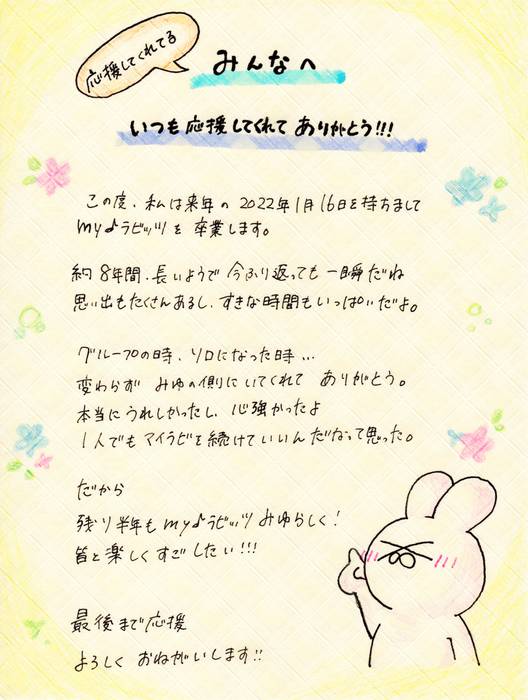 応援してくれてる
みんなへ
いつも応援してくれて ありがとう!!!
この度、私は来年の2022年1月16日を持ちまして
my♪ラビッツを卒業します。
約8年間、長いようで今ふり返っても一瞬だね
思い出もたくさんあるし、すきな時間もいっぱいだよ。
グループの時、ソロになった時…
変わらず みゆの側にいてくれて ありがとう。
本当にうれしかったし、心強かったよ
1人でもマイラビを続けていいんだなって思った。
だから
残り半年もmy♪ラビッツみゆらしく!
皆と楽しくすごしたい!!!
最後まで応援
よろしく おねがいします!!